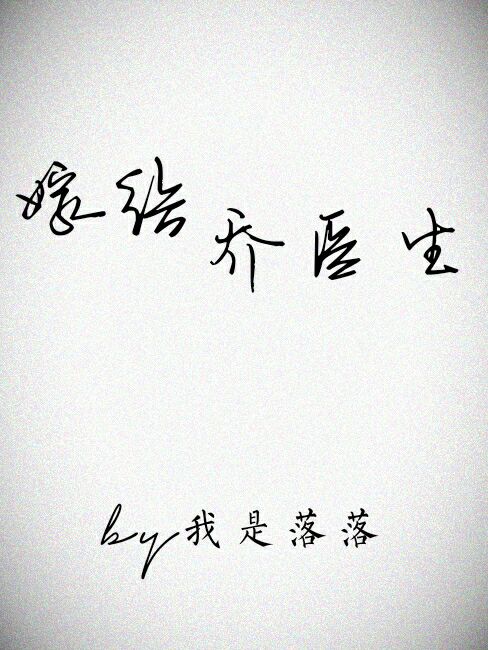 嫁给乔医生
by我是落落